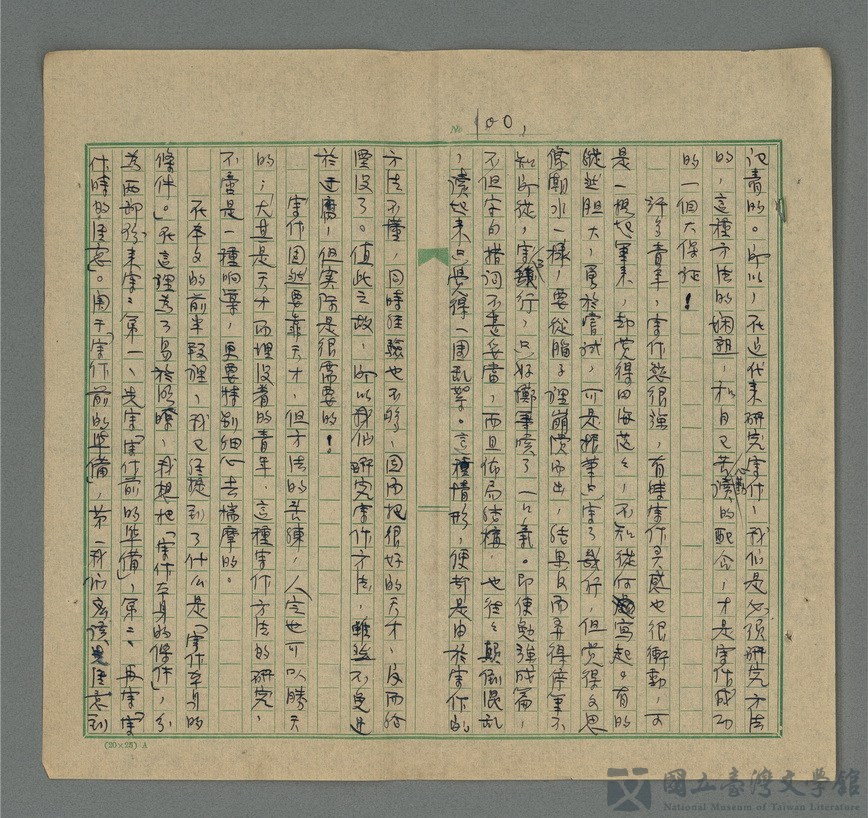 No 100,
記者的。所以，在近代來研究寫作，我們是必須研究方法
的，這種方法的嫻熟，和自己苦心讀的配合，才是寫作成功
的一個大保証！
許多青年，寫作慾很強，有時寫作灵感也很衝動，可
是一想起筆來，却覚得四海茫々，不知從何寫起。有的
縱然胆大，勇於嘗試，可是振筆只寫了幾行，但覚得文思
像潮水一樣，要從腦子裡崩潰而出，結果反而弄得停筆不
知所從，寫幾行，只好擲筆嘆了一口氣。即使勉強成篇，
不但字句措詞不甚妥當，而且佈局結構，也往々顛倒混乱
，讀起來只覚得一團乱絮。這種情形，便都是由於寫作的
方法不懂，同時経驗也不夠，因而把很好的天才，反而給
埋没了。值此之故，所以我們研究寫作方法，雖然不免近
於迂腐，但实际是很需要的！
寫作固然要靠天才，但方法的苦練，人定也可以勝天
的；尤其是天才而埋没着的青年，這種寫作方法的研究，
不啻是一種响導，更要特別細心去揣摩的。
在本文的前半段裡，我已経提到了什么是「寫作本身的
條件。」在這裡為了易於明瞭，我想把「寫作本身的條件」，分
為兩部份來寫：第一、先寫「寫作前的準備」，第二、再寫「寫
作時的注意」。関于「寫作前的準備」，第一我們應該是注意到
(20×25) A
國立臺灣文學館
National Museum of Taiwan Literature